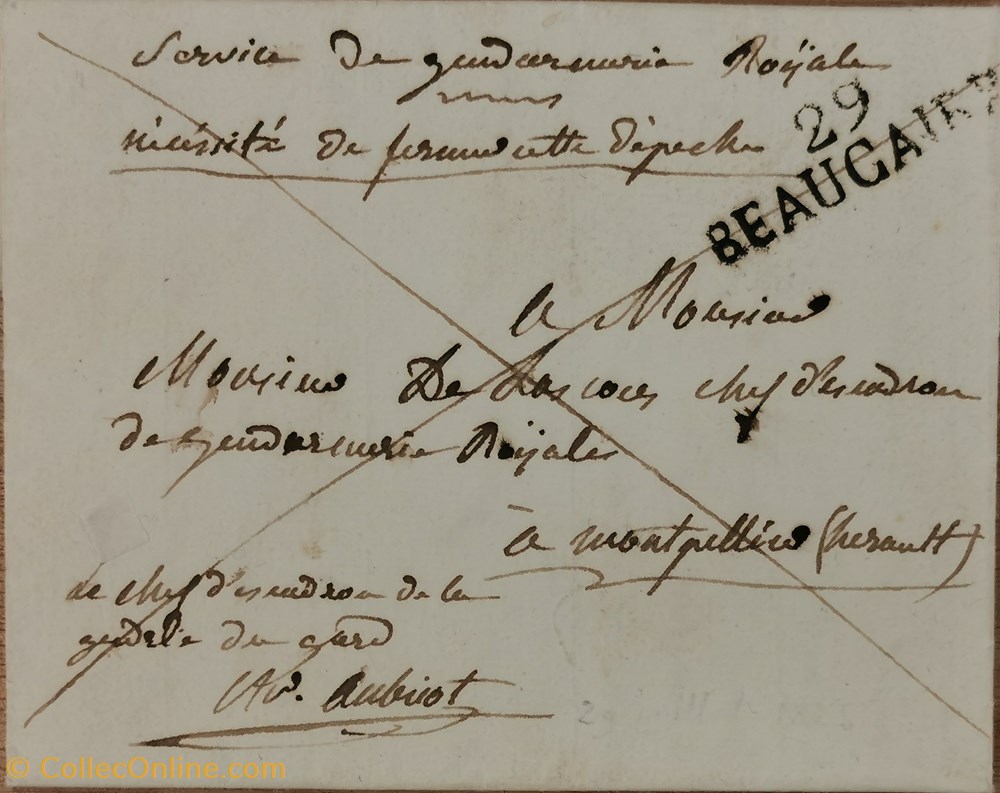 Service de gendarmerie Royale
nécéssité de fermer cette dépeche
29
BEAUCAIRE
a Monsieur
Monsieur De Lascours chef d'escadron
de gendarmerie Royale
à montpellier (herault)
Le chef d'escadron de la
gendrie du gard
Aubriot
© CollecOnline.com